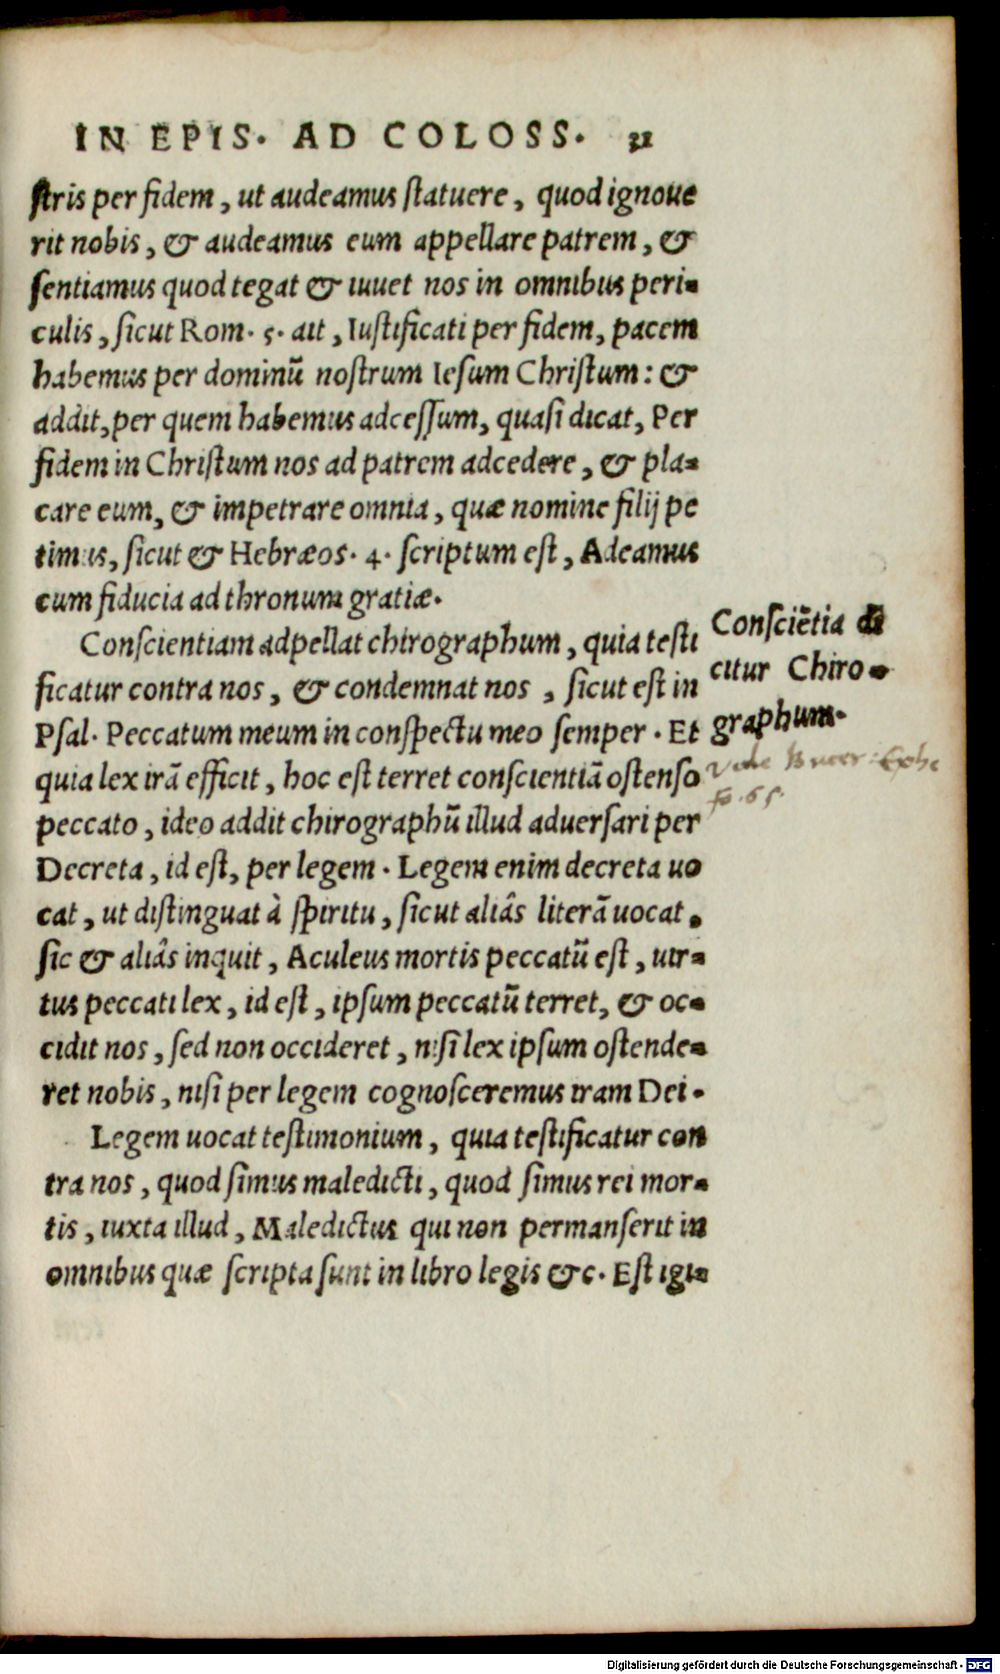 IN EPIS. AD COLOSS. 31
stris per fidem, ut audeamus statuere, quod ignoue
rit nobis, & audeamus eum appellare patrem, &
sentiamus quod tegat & iuuet nos in omnibus peri-
culis, sicut Rom. 5. ait, Iustificati per fidem, pacem
habemus per dominũ nostrum Iesum Christum: &
addit, per quem habemus adcessum, quasi dicat, Per
fidem in Christum nos ad patrem adcedere, & pla-
care eum, & impetrare omnia, quæ nomine filij pe
timus, sicut & Hebræos. 4. scriptum est, Adeamus
cum fiducia ad thronum gratiæ.
Conscientiam adpellat chirographum, quia testi
ficatur contra nos, & condemnat nos, sicut est in
Psal. Peccatum meum in conspectu meo semper. Et
quia lex irã efficit, hoc est terret conscientiã ostenso
peccato, ideo addit chirographũ illud aduersari per
Decreta, id est, per legem. Legem enim decreta uo
cat, ut distinguat à spiritu, sicut aliâs literã uocat.
sic & aliâs inquit, Aculeus mortis peccatũ est, uir-
tus peccati lex, id est, ipsum peccatũ terret, & oc-
cidit nos, sed non occideret, nisi lex ipsum ostende-
ret nobis, nisi per legem cognosceremus iram Dei.
Legem uocat testimonium, quia testificatur con
tra nos, quod simus maledicti, quod simus rei mor-
tis, iuxta illud, Maledictus qui non permanserit in
omnibus quæ scripta sunt in libro legis &c. Est igi-
Consciẽtia di
citur Chiro-
graphum.
Vide Bucer: Ephe
fo. 65.
Digitalisierung gefördert durch die Deutsche Forschungsgemeinschaft - DFG